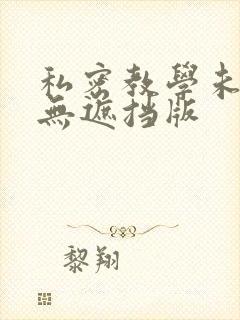 私密教學未
無遮挡版
黎翔